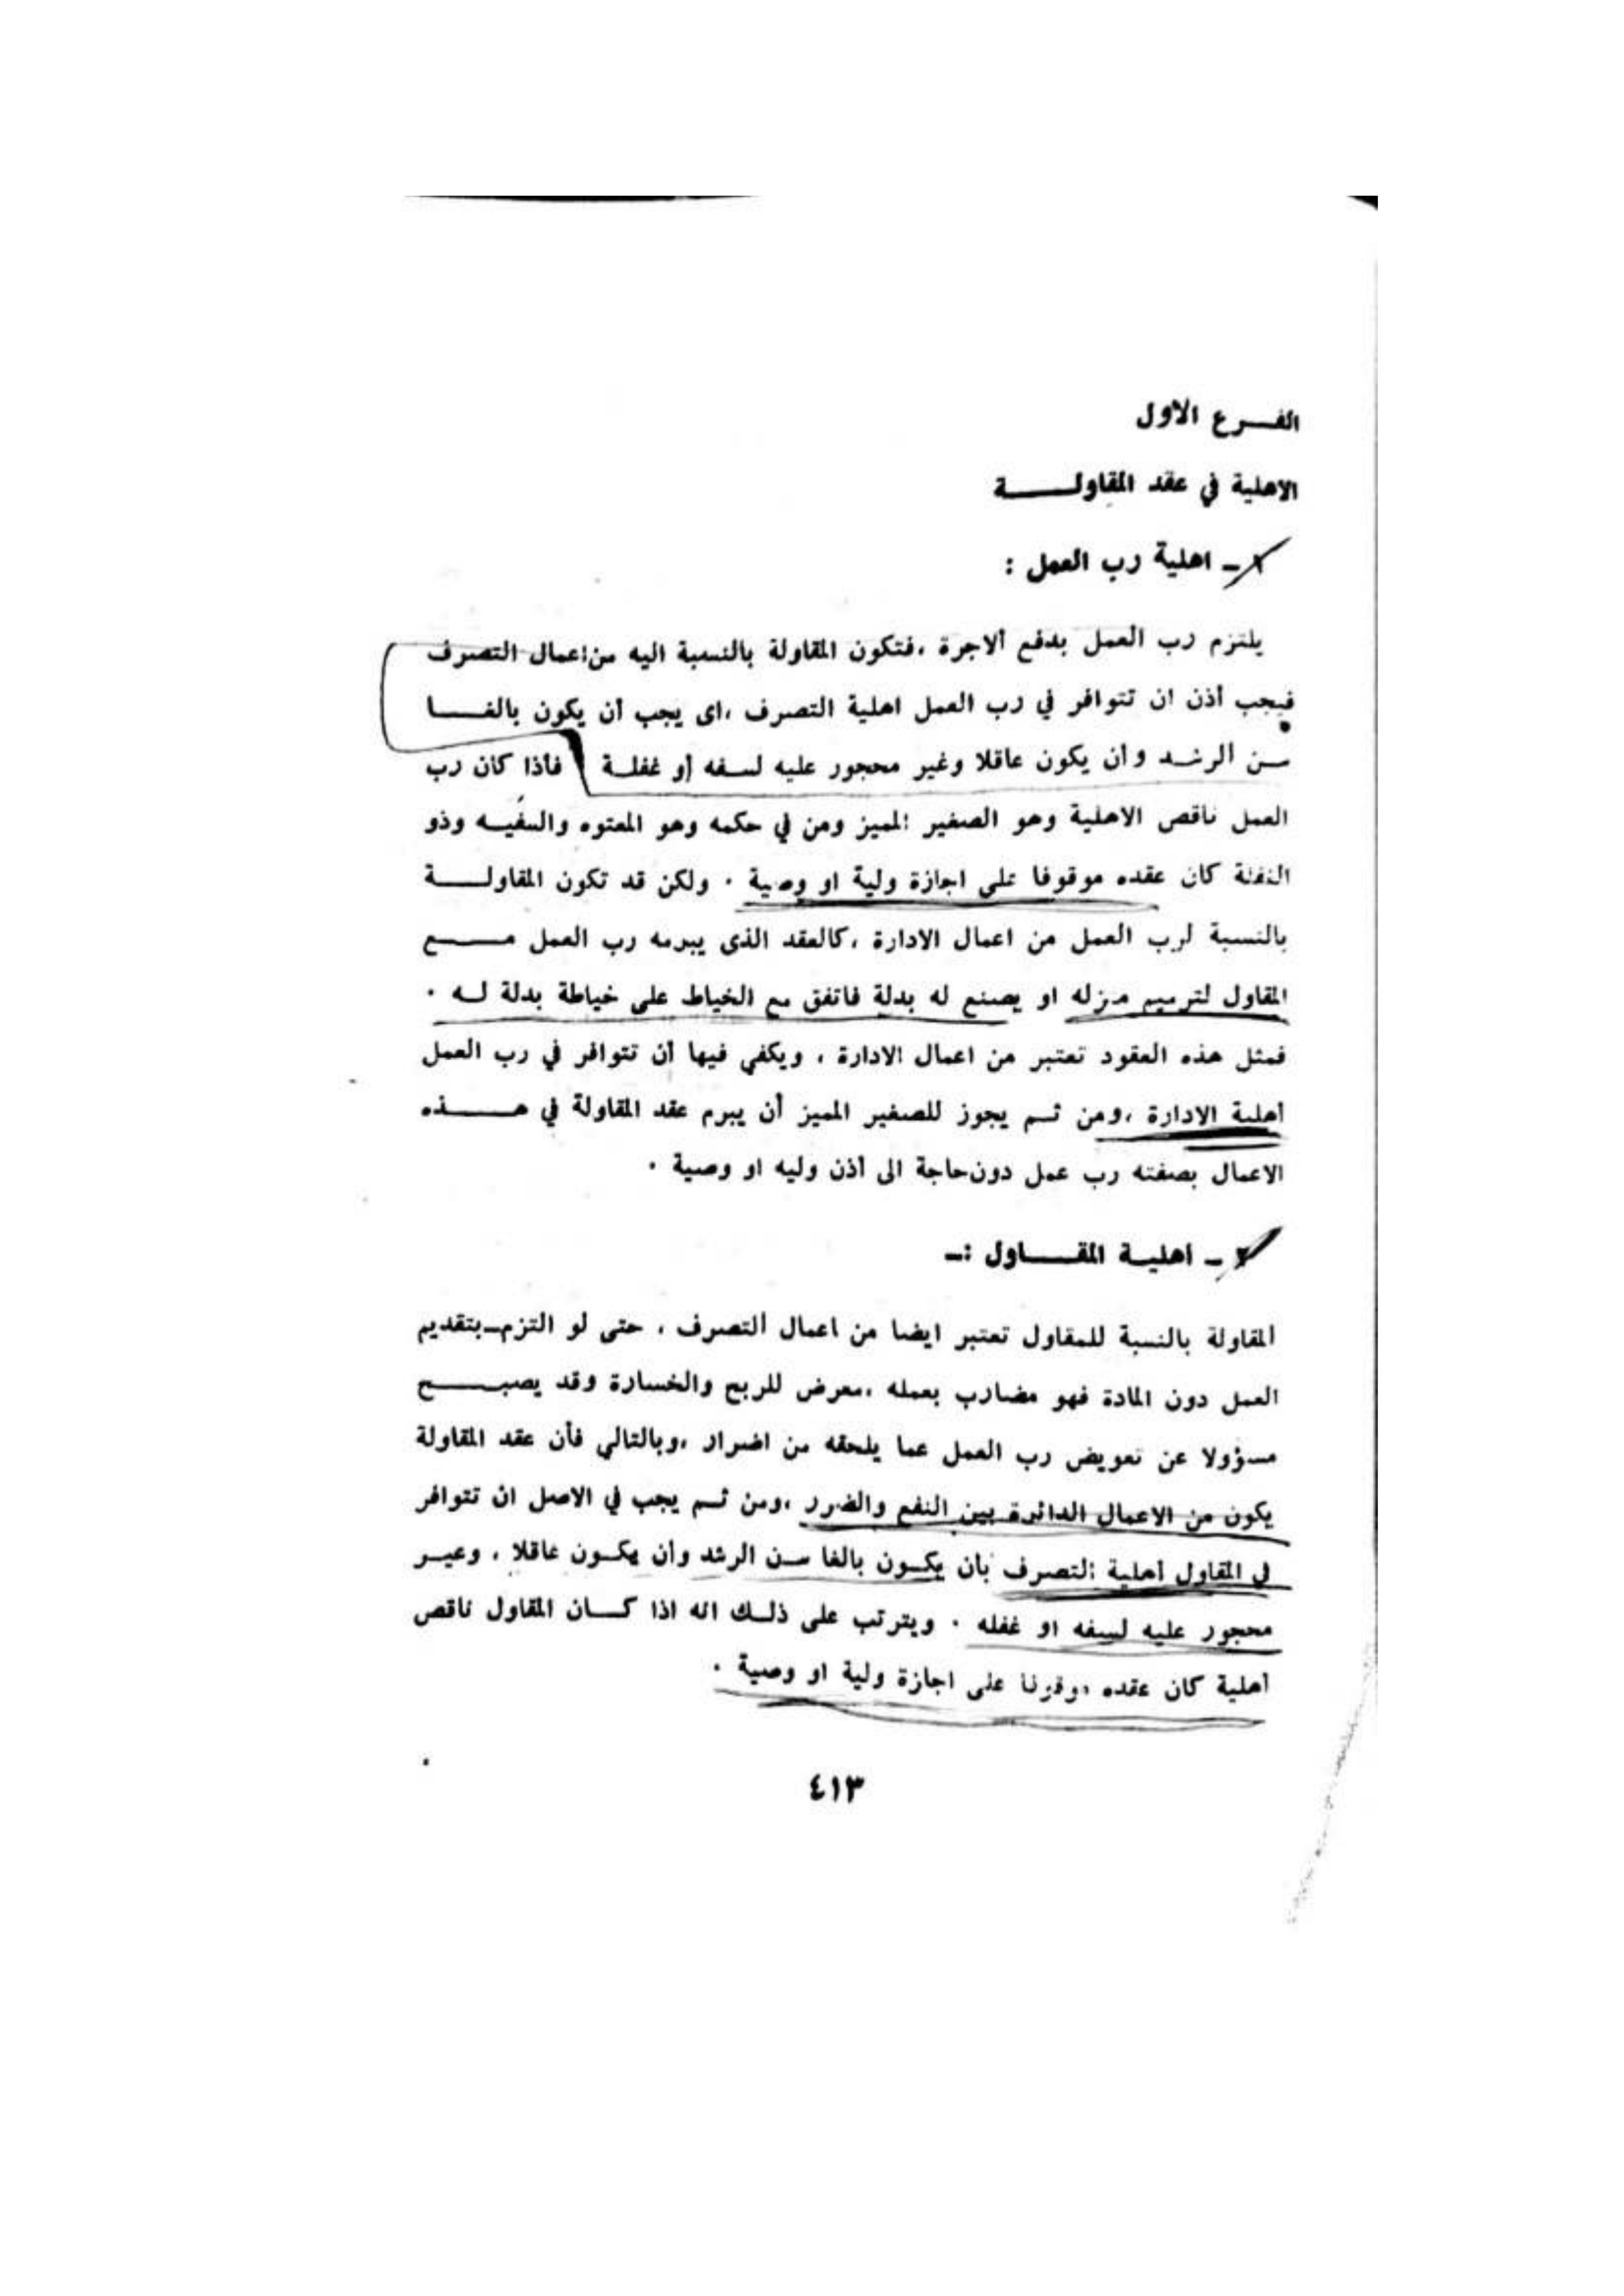 الفرع الاول
الاهلية في عقد المقاولة
١ـ اهلية رب العمل :
يلتزم رب العمل بدفع الاجرة ،فتكون المقاولة بالنسبة اليه من اعمال التصرف
فيجب أذن ان تتوافر في رب العمل اهلية التصرف ،اى يجب أن يكون بالغا
سن الرشد وان يكون عاقلا وغير محجور عليه لسفه أو غفلة فأذا كان رب
العمل ناقص الاهلية وهو الصغير المميز ومن في حكمه وهو المعتوه والسفيه وذو
الغفلة كان عقده موقوفا على اجازة ولية او وصية . ولكن قد تكون المقاولة
بالنسبة لرب العمل من اعمال الادارة ،كالعقد الذى يبرمه رب العمل مع
المقاول لترميم منزله او يصنع له بدلة فاتفق مع الخياط على خياطة بدلة له .
فمثل هذه العقود تعتبر من اعمال الادارة ، ويكفي فيها أن تتوافر في رب العمل
أهلية الادارة ،ومن ثم يجوز للصغير المميز أن يبرم عقد المقاولة في هذه
الاعمال بصفته رب عمل دون حاجة الى أذن وليه او وصية .
٢ـ اهلية المقاول :ـ
المقاولة بالنسبة للمقاول تعتبر ايضا من اعمال التصرف ، حتى لو التزم بتقديم
العمل دون المادة فهو مضارب بعمله ،معرض للربح والخسارة وقد يصبح
مسؤولا عن تعويض رب العمل عما يلحقه من اضرار ،وبالتالي فأن عقد المقاولة
يكون من الاعمال الدائرة بين النفع والضرر ،ومن ثم يجب في الاصل ان تتوافر
في المقاول أهلية التصرف بأن يكون بالغا سن الرشد وأن يكون عاقلا ، وغير
محجور عليه لسفه او غفله . ويترتب على ذلك انه اذا كان المقاول ناقص
أهلية كان عقده موقوفا على اجازة ولية او وصية .
٤١٣